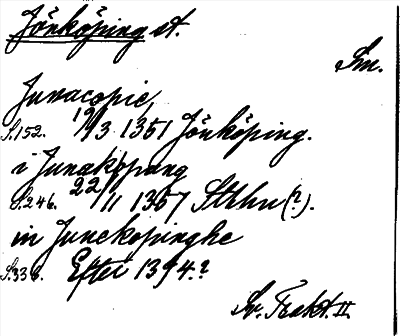 Jönköping st.
Sm.
Junacopie,
S.152. 19/3 1351 Jönköping.
i Junakøpung
S.246. 22/11 1357 Sthlm(?).
in Junekopinghe
S.336. Efter 1394.?
Sv. Trakt. II